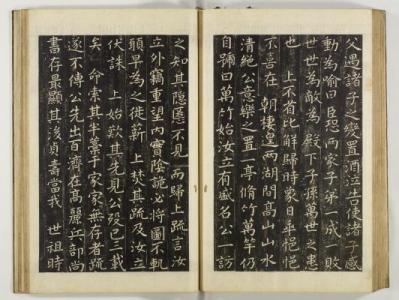 父遇諸子之變置酒泣告使諸子感
動為喻曰臣恐兩家子弟一成一敗
世世為敵為 殿下子孫萬世之患
也 上不省比解歸時象日乎悒悒
不喜在 朝棲遑兩湖間高山山水
清絕公意樂之置一亭脩竹萬竿仍
自號曰萬竹始汝立有盛名公一訪
之知其隱慝不見而歸上疏言汝
立外竊重望內實陰詭必將圖不軌
頭早為之徙薪 上焚其疏及汝立
伏誅 上始歎其先見公歿已三載
矣 命索其半藁于家家無存者疏
遂不傳公先出百濟在高麗兵部尚
書存最顯其後貞壽當我 世祖時